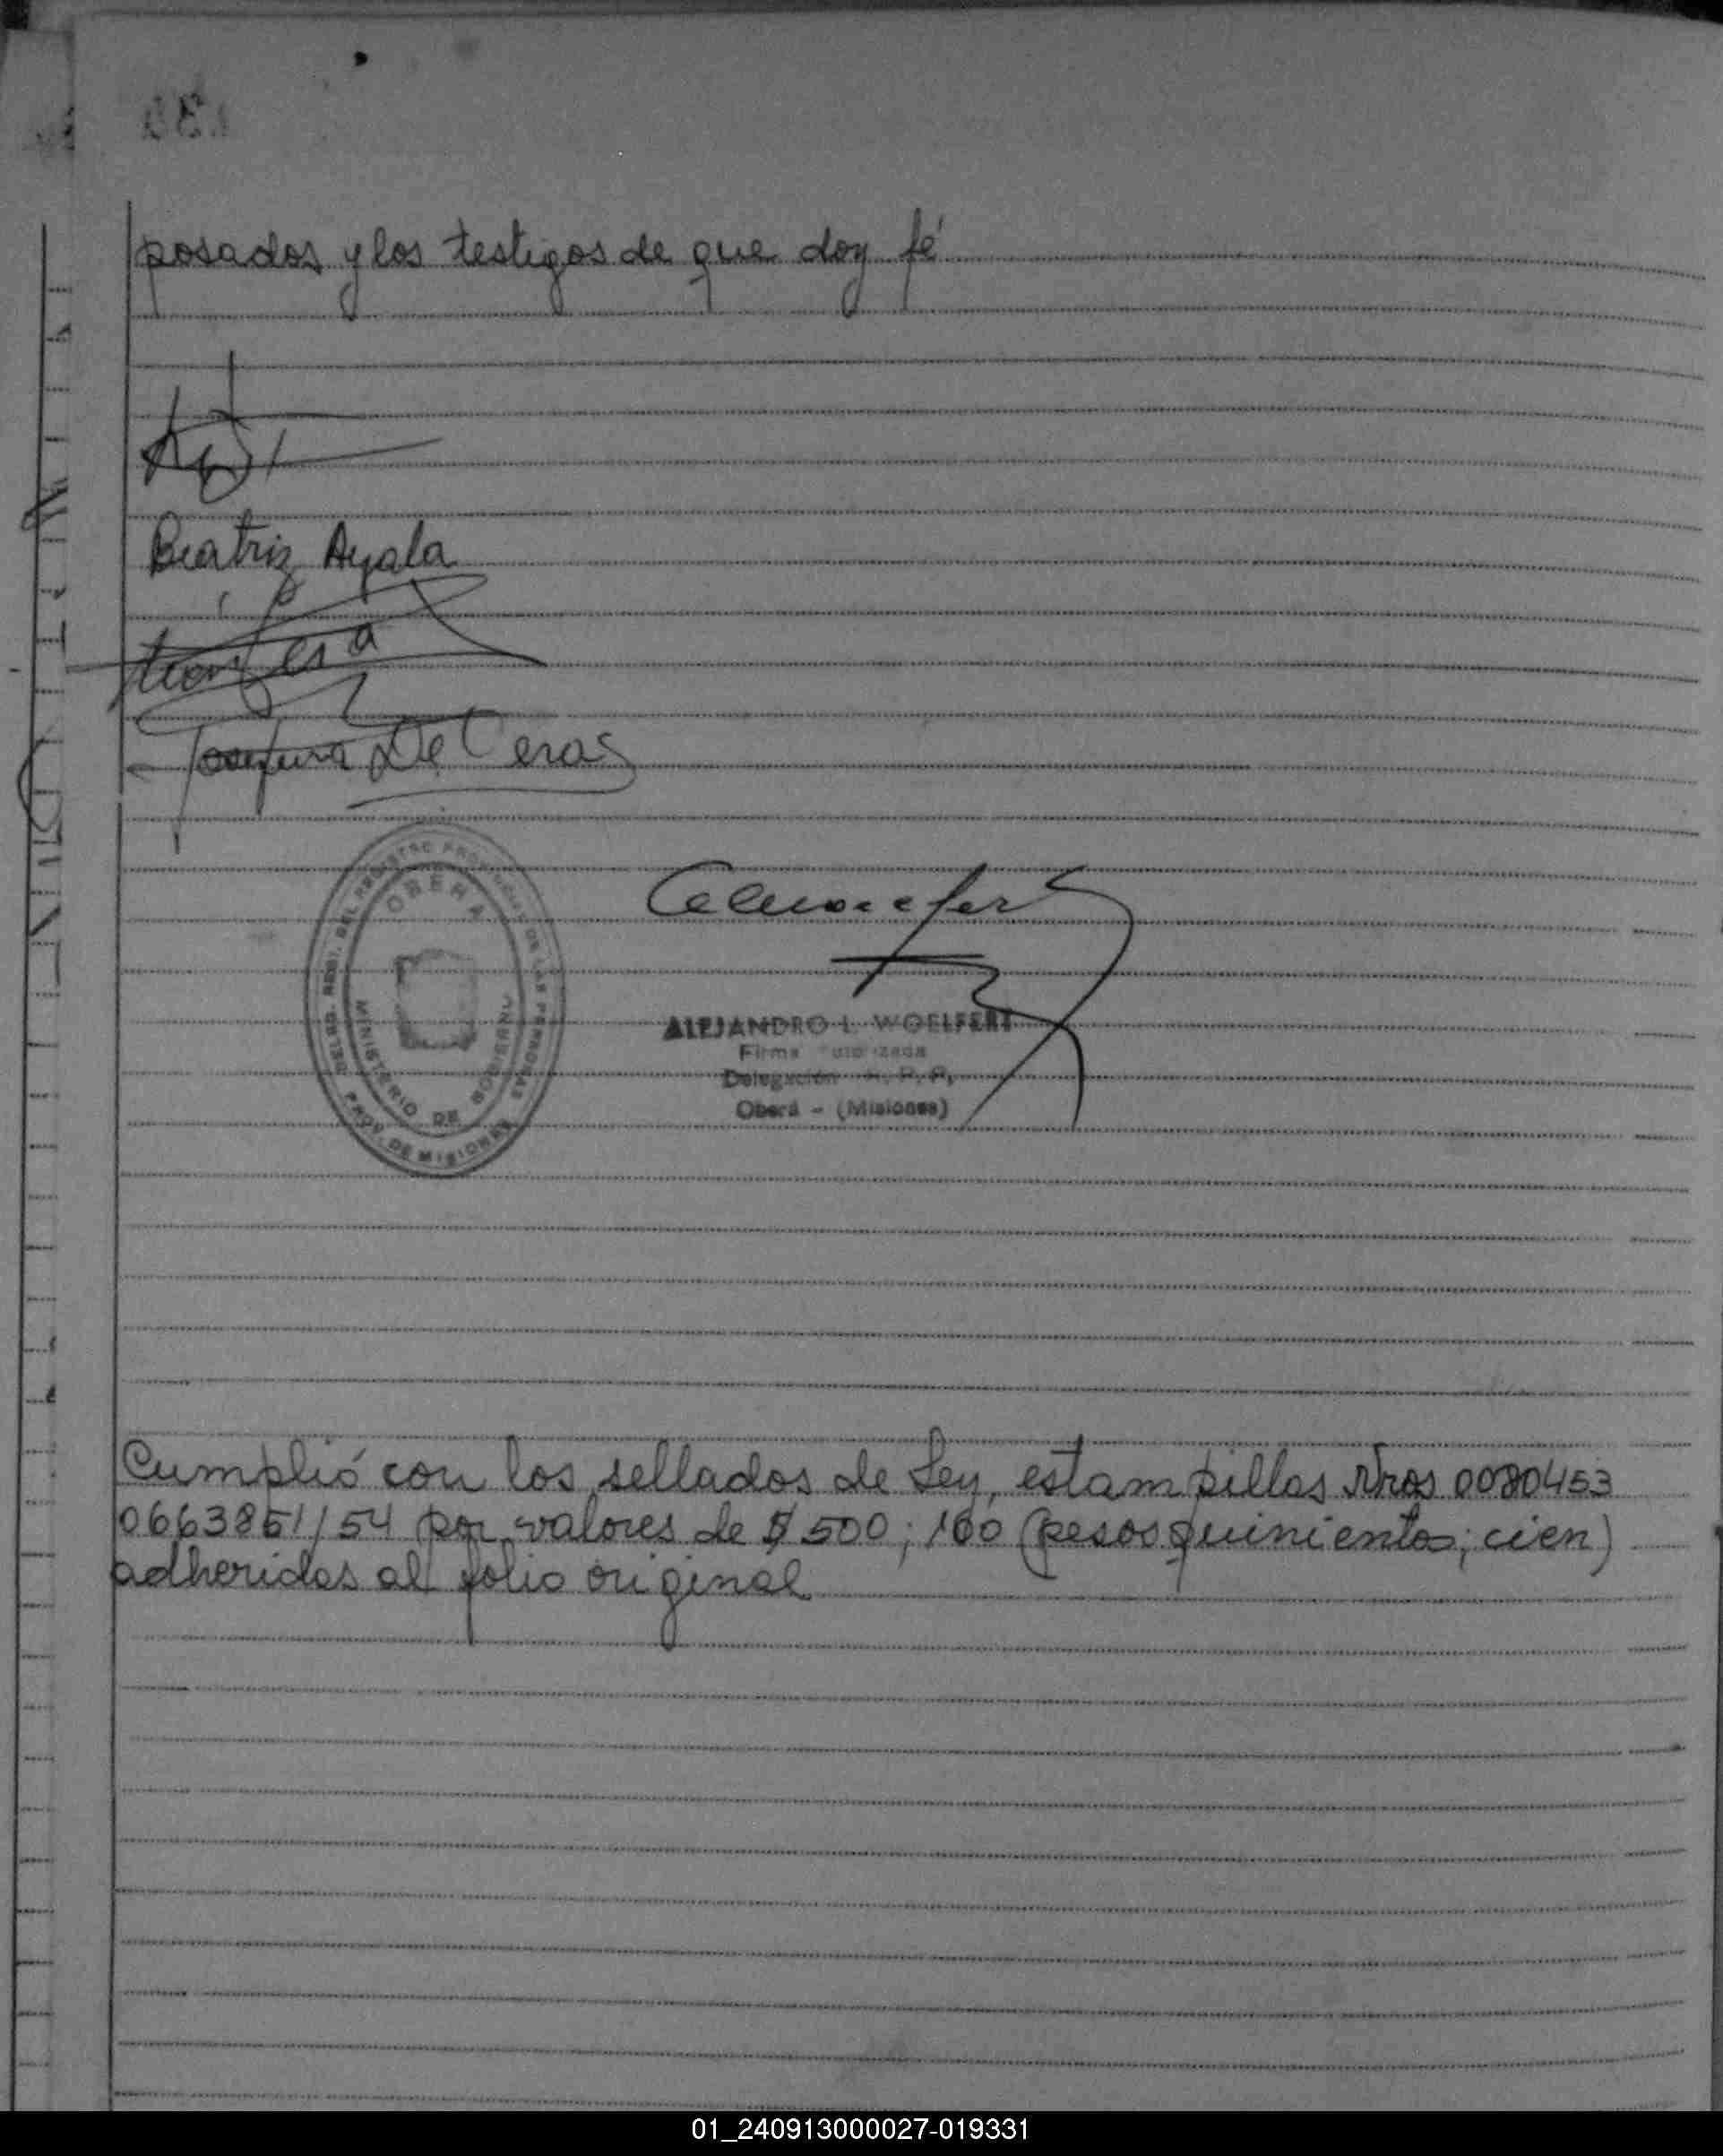 posados y los testigos de que doy fé
Beatriz Ayala
Josefina De Ceras
OBERA
MINISTERIO DE
PROV. DE MISIONES
ALEJANDRO L. WOELFERT
Firma Autorizada
Delegación R. P. P.
Oberá - (Misiones)
Cumplió con los sellados de Ley, estampillas Nros 0080453
0663851/54 por valores de $ 500; 100 (pesos quinientos; cien)
adheridas al folio original
01_240913000027-019331